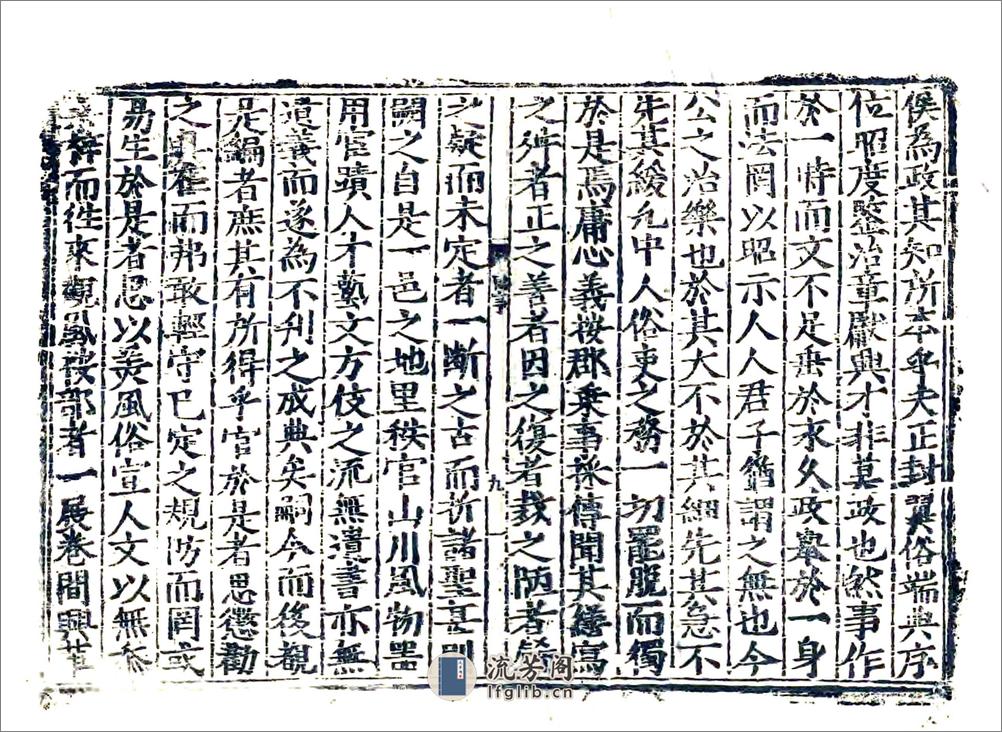 侯為政其知所本乎夫正封翼俗端典序
位昭度鑒治章獻興才非莫政也然事作
於一時而文不足垂於永久政舉於一身
而法罔以昭示人人君子猶謂之無也今
公之治樂也於其大不於其細先其急不
先其緩允中人俗吏之務一切罷脫而獨
於是焉庸心義按郡乗事採傳聞其繆寫
之舛者正之善者因之復者裁之陋者
之疑而未定者一断之古而折諸聖甚則
闕之自是一邑之地里秩官山川風物器
用宦蹟人才藝文方伎之流無遺書亦無
遺義而遂為不刋之成典矣嗣今而後觀
是編者庶其有所得乎官於是者思懲勸
之典在而弗敢輕守已定之規防而罔或
易生於是者思以美風俗宣人文以無忝
而徃來觀風按部者一展卷間興革
九
流芳阁
lfglib.cn